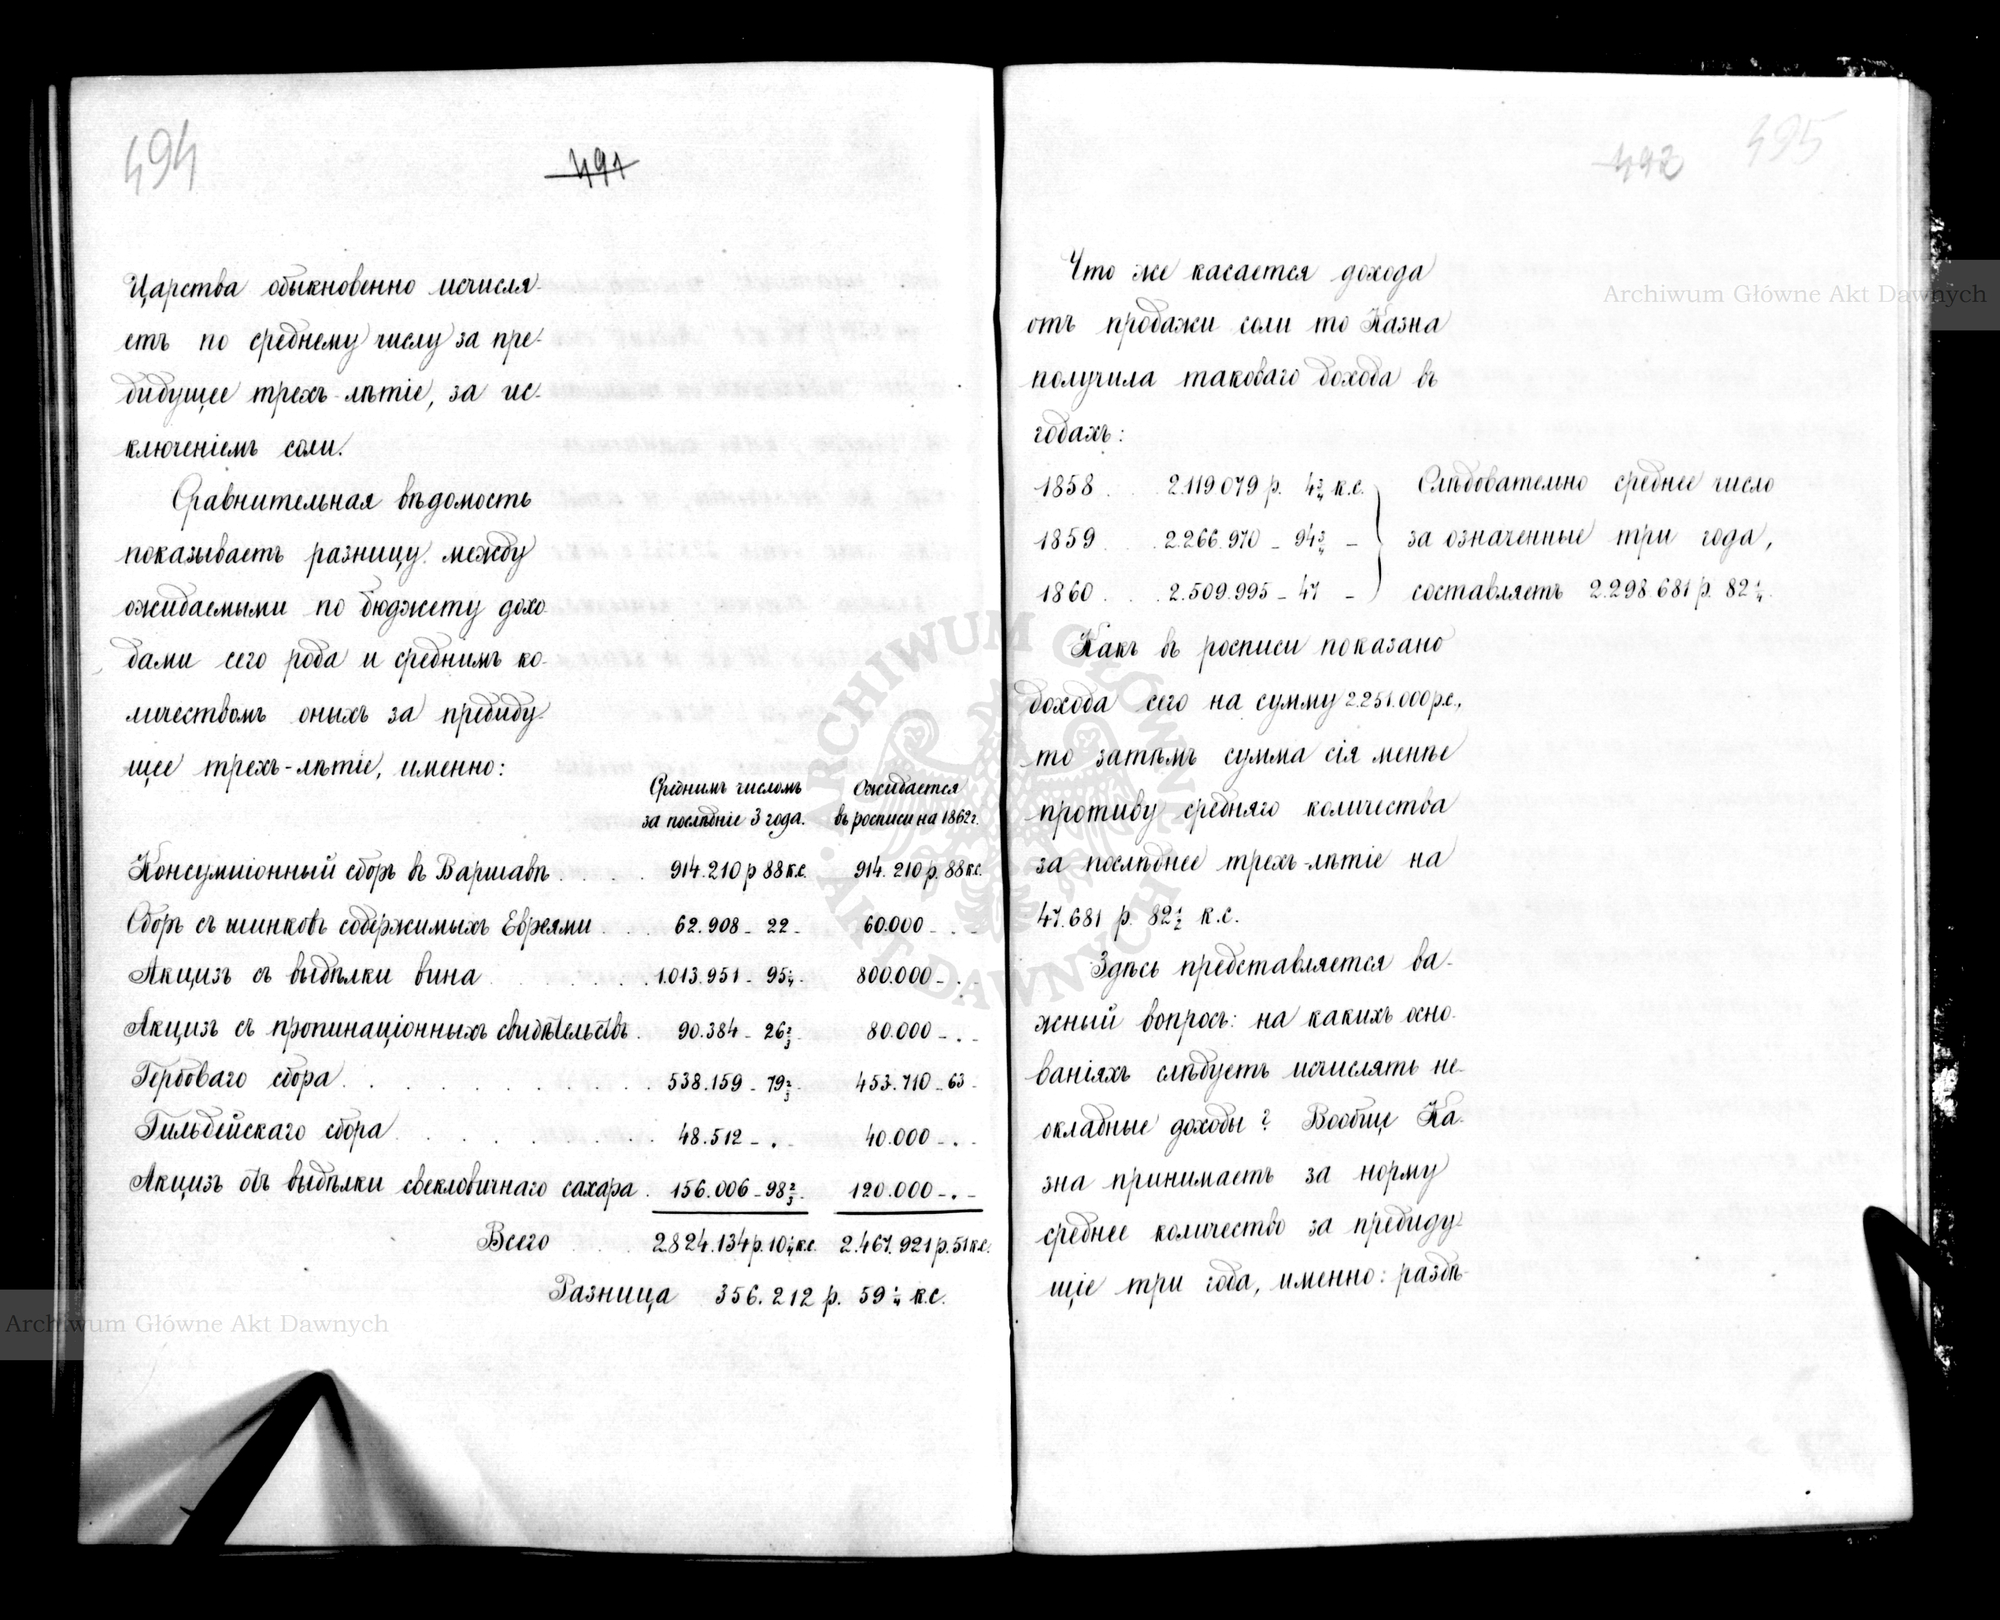 494
491
Царства обыкновенно исчисля-
етъ по среднему числу за пре-
дидущее трехъ-лѣтіе, за ис-
ключеніемъ соли.
Сравнительная вѣдомость
показываетъ разницу между
ожидаемыми по бюджету дохо-
дами сего рода и среднимъ ко-
личествомъ оныхъ за предиду-
щее трехъ-лѣтіе, именно:
Среднимъ числомъ Ожидается
за послѣдніе 3 года. въ росписи на 1862 г.
Консумціонный сборъ въ Варшавѣ . . . 914.210 р 88 к.с. 914.210 р. 88 к.с.
Сборъ съ шинковъ содержимыхъ Евреями . . . 62.908 - 22 - 60.000 - . -
Акцизъ съ выдѣлки вина . . . . . . . 1.013.951 - 95¼ - 800.000 - . -
Акцизъ съ пропинаціонныхъ свидѣтельствъ . 90.384 - 26⅔ - 80.000 - . -
Гербоваго сбора . . . . . . . . 538.159 - 79⅔ - 453.710 - 63 -
Гильдейскаго сбора . . . . . . . 48.512 - . - 40.000 - . -
Акцизъ отъ выдѣлки свекловичнаго сахара . 156.006 - 98⅔ - 120.000 - . -
Всего . . . 2.824.134 р. 10¼ к.с. 2.467.921 р. 51 к.с.
Разница 356.212 р. 59¼ к.с.
492
495
Что же касается дохода
отъ продажи соли то Казна
получила таковаго дохода въ
годахъ:
1858 . . 2.119.079 р. 4¾ к.с. Слѣдовательно среднее число
1859 . . 2.266.970 - 94¾ - за означенные три года,
1860 . . 2.509.995 - 47 - составляетъ 2.298.681 р. 82½.
Какъ въ росписи показано
дохода сего на сумму 2.251.000 р.с.,
то затѣмъ сумма сія менѣе
противу средняго количества
за послѣднее трехъ-лѣтіе на
47.681 р. 82½ к.с.
Здѣсь представляется ва-
жный вопросъ: на какихъ осно-
ваніяхъ слѣдуетъ исчислять не-
окладные доходы? Вообще Ка-
зна принимаетъ за норму
среднее количество за предиду-
щіе три года, именно: раздѣ-
Archiwum Główne Akt Dawnych
Archiwum Główne Akt Dawnych
ARCHIWUM GŁÓWNE AKT DAWNYCH